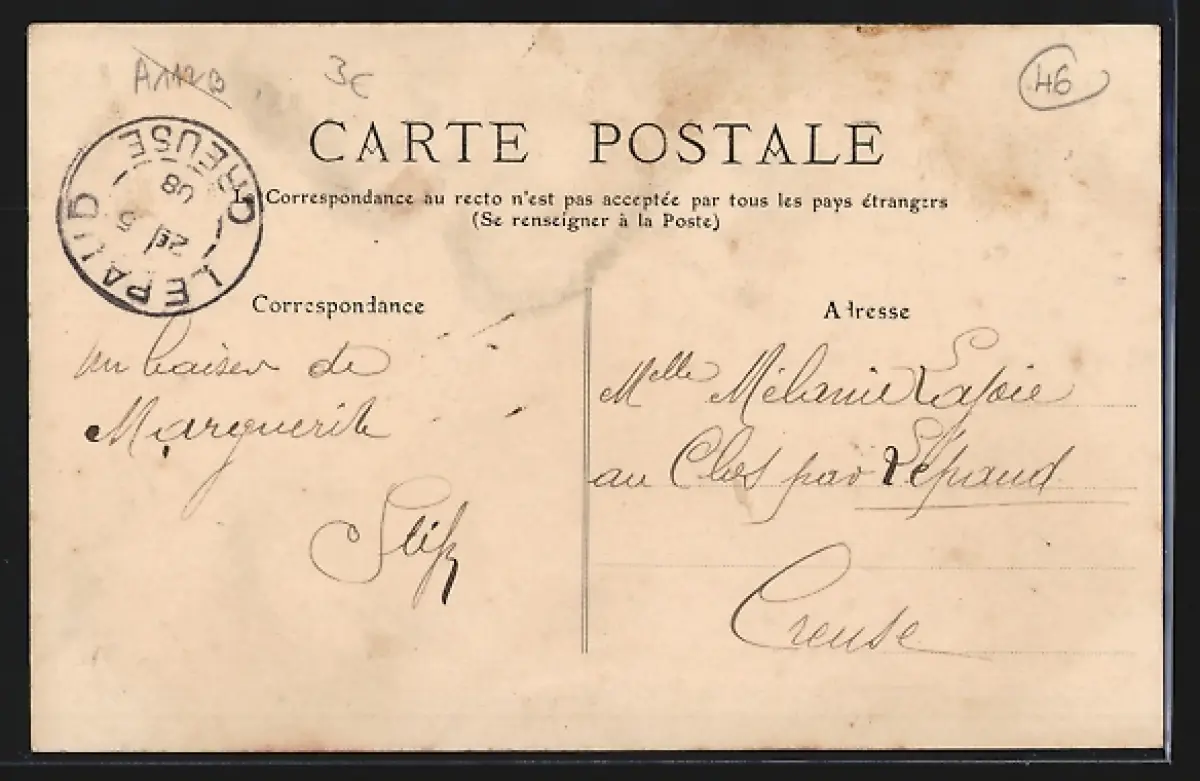 3€
46
CARTE POSTALE
La Correspondance au recto n'est pas acceptée par tous les pays étrangers
(Se renseigner à la Poste)
LEPAUD CREUSE
5
08
Correspondance
Adresse
un baiser de
Marguerite
Melle Mélanie Lafoie
au Clos par Lépaud
Creuse